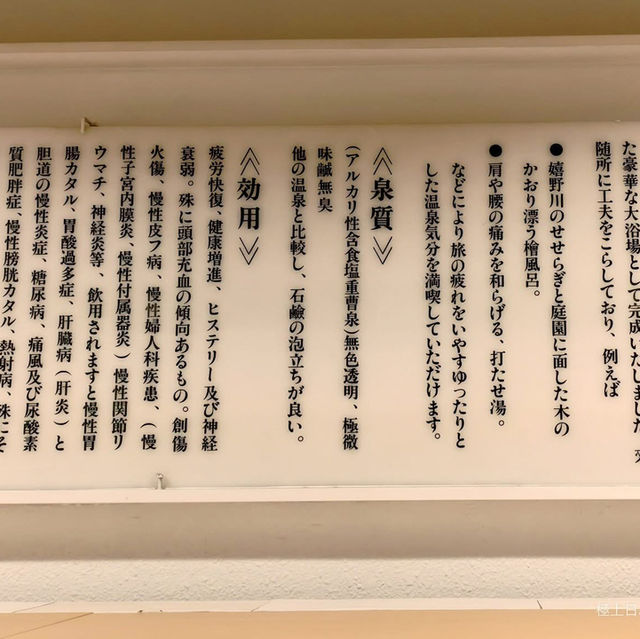 た豪華な大浴場として完成いたしました
随所に工夫をこらしており、例えば
●嬉野川のせせらぎと庭園に面した木の
かおり漂う檜風呂。
●肩や腰の痛みを和らげる、打たせ湯。
などにより旅の疲れをいやすゆったりと
した温泉気分を満喫していただけます。
《泉質》
(アルカリ性含食塩重曹泉)無色透明、極微
味鹹無臭
他の温泉と比較し、石鹸の泡立ちが良い。
《効用》
疲労快復、健康増進、ヒステリー及び神経
衰弱。殊に頭部充血の傾向あるもの。創傷
火傷、慢性皮フ病、慢性婦人科疾患、(慢
性子宮内膜炎、慢性付属器炎)慢性関節リ
ウマチ、神経炎等、飲用されますと慢性胃
腸カタル、胃酸過多症、肝臓病(肝炎)と
胆道の慢性炎症、糖尿病、痛風及び尿酸素
質肥胖症、慢性膀胱カタル、熱射病、殊にそ